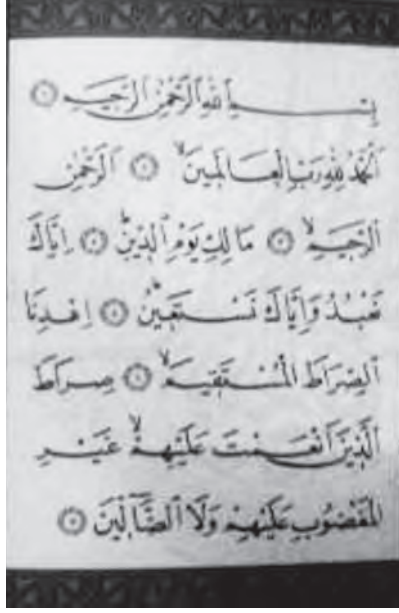 بِسْمِ اللهِ الرَّحْمٰنِ الرَّحِيمِ ۝
اَلْحَمْدُ لِلّٰهِ رَبِّ الْعَالَمِينَۙ ۝ اَلرَّحْمٰنِ
الرَّحِيمِۙ ۝ مَالِكِ يَوْمِ الدِّينِۜ ۝ اِيَّاكَ
نَعْبُدُ وَاِيَّاكَ نَسْتَعِينُۜ ۝ اِهْدِنَا
الصِّرَاطَ الْمُسْتَقِيمَۙ ۝ صِرَاطَ
الَّذِينَ اَنْعَمْتَ عَلَيْهِمْۙ غَيْرِ
الْمَغْضُوبِ عَلَيْهِمْ وَلَا الضَّٓالِّينَ ۝